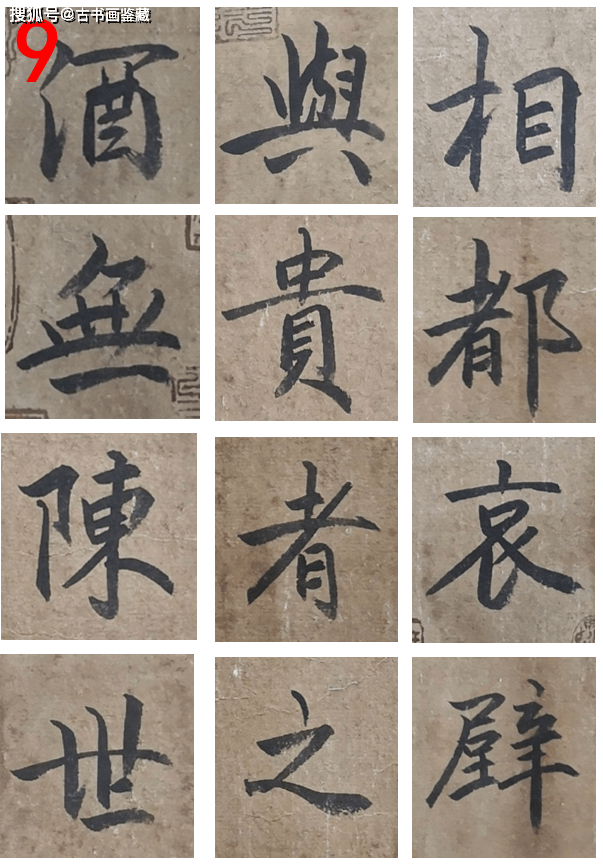 搜狐号@古书画鉴藏
9
與 相
無 貴 都
陳 者 哀
世 之 壁